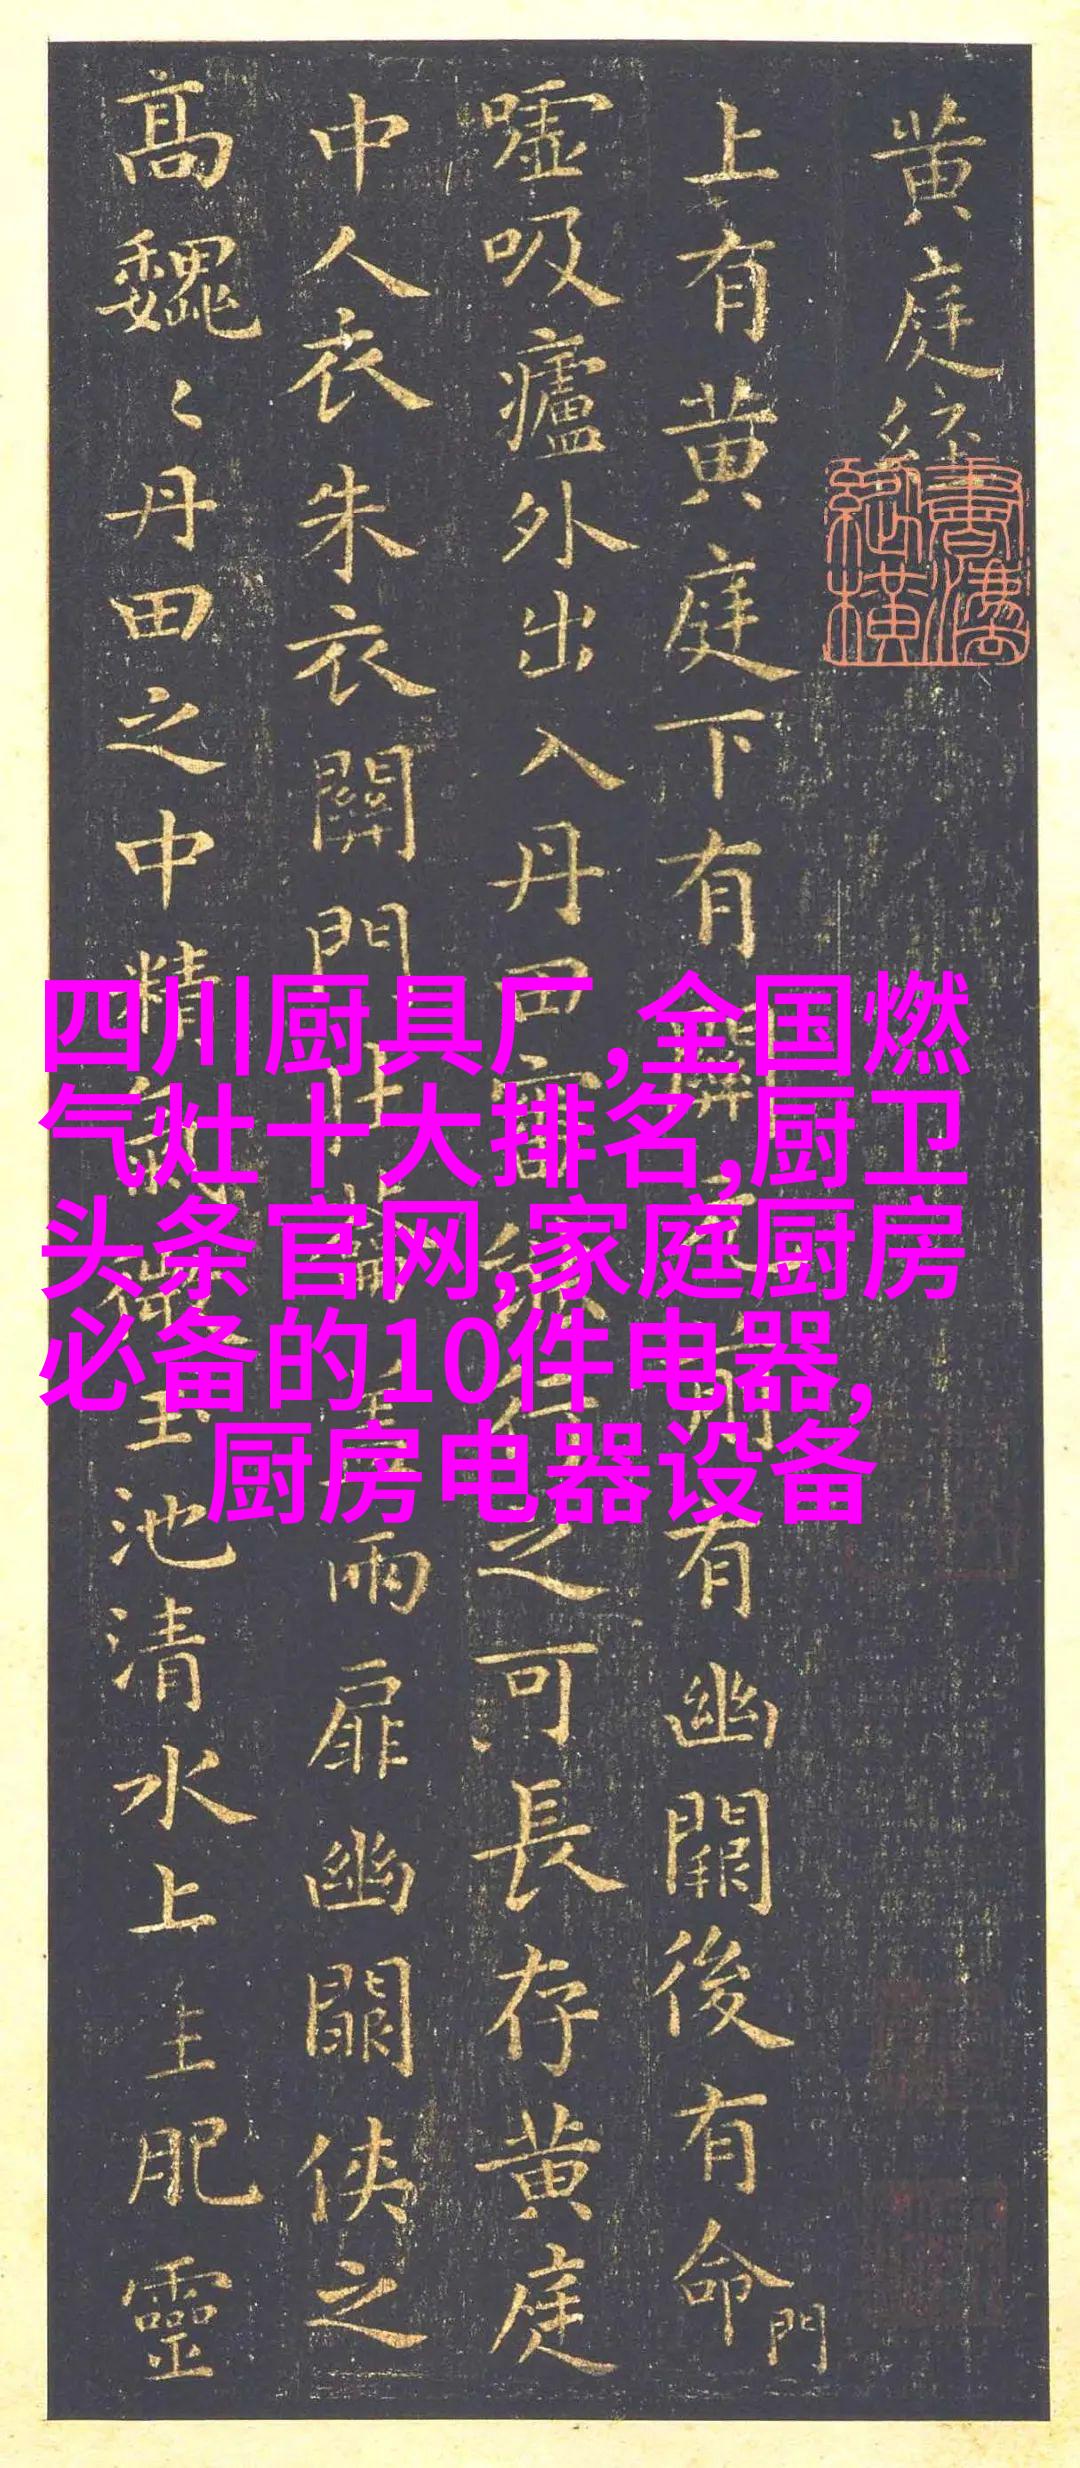 黄庭経
上有黄庭下有關元前有幽闕後有命門
嘘吸廬外出入丹田審能行之可長存黄庭
中人衣朱衣關門壯籥蓋兩扉幽闕俠之
高巍〻丹田之中精氣微玉池清水上主肥靈
四川厨具厂,全国燃
气灶十大排名,厨卫
头条官网,家庭厨房
必备的10件电器,
厨房电器设备